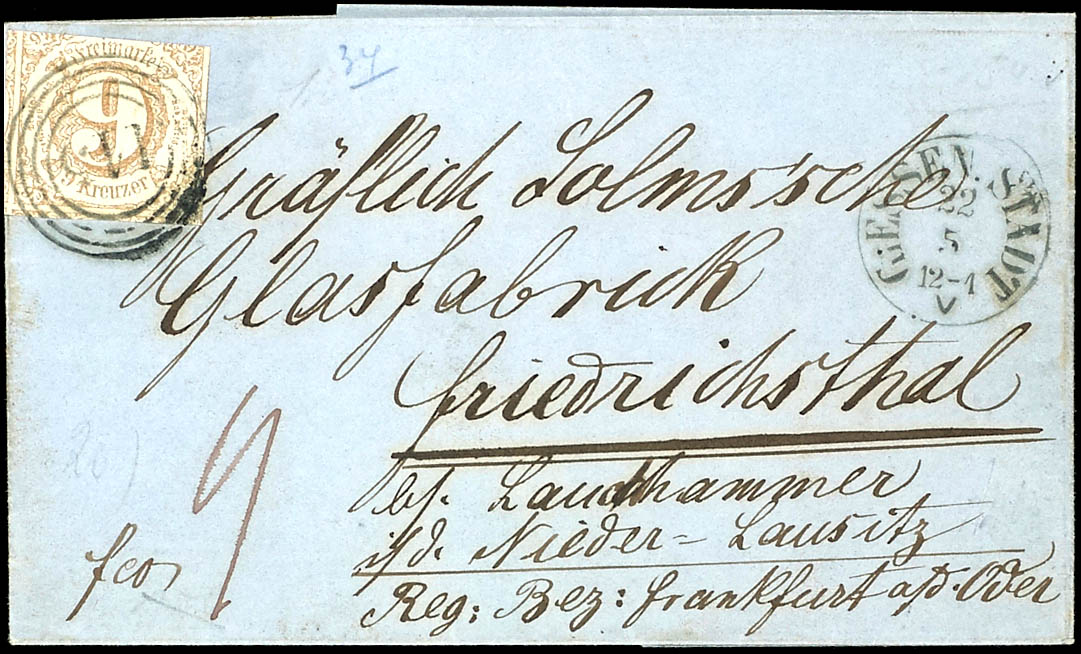 34
Freimarke
9
Kreuzer
Gräflich Solms'sche
Glasfabrick
GIESSEN. STADT
22
5
12-1
V
friedrichsthal
9
bf. Lauchhammer
i/d. Nieder=Lausitz
fco
Reg: Bez: frankfurt a/d. Oder